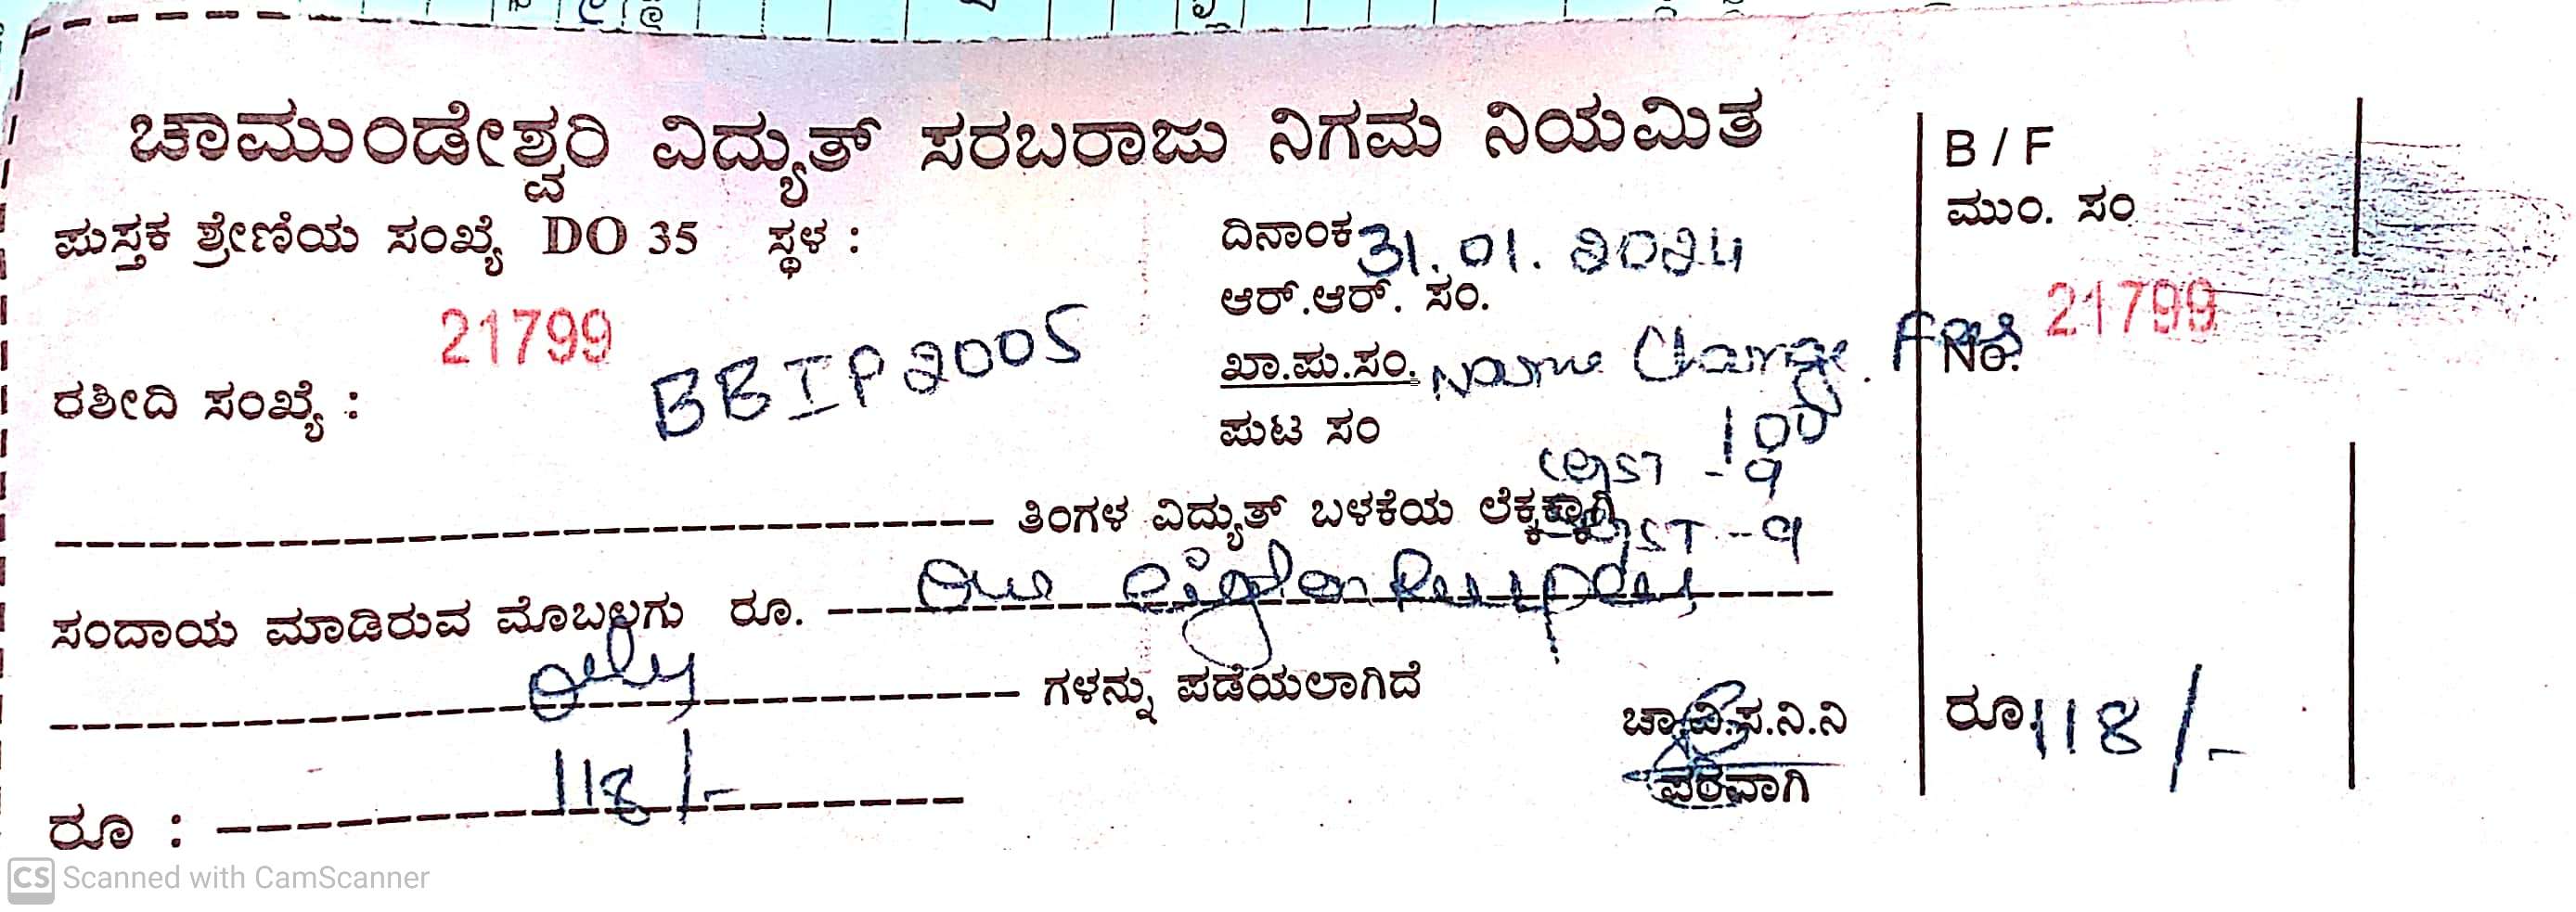 ಚಾಮುಂಡೇಶ್ವರಿ ವಿದ್ಯುತ್ ಸರಬರಾಜು ನಿಗಮ ನಿಯಮಿತ
ಪುಸ್ತಕ ಶ್ರೇಣಿಯ ಸಂಖ್ಯೆ DO 35 ಸ್ಥಳ :
ದಿನಾಂಕ 31.01.2024
ಆರ್.ಆರ್. ಸಂ.
21799
ರಶೀದಿ ಸಂಖ್ಯೆ : BBIP2005
ಖಾ.ಪು.ಸಂ. Name Change.
ಪುಟ ಸಂ 100
CGST - 9
ತಿಂಗಳ ವಿದ್ಯುತ್ ಬಳಕೆಯ ಲೆಕ್ಕಕ್ಕಾಗಿ
GST - 9
ಸಂದಾಯ ಮಾಡಿರುವ ಮೊಬಲಗು ರೂ. One
only ಗಳನ್ನು ಪಡೆಯಲಾಗಿದೆ
ಚಾ.ವಿ.ಸ.ನಿ.ನಿ
ಪರವಾಗಿ
ರೂ : 118/-
B / F
ಮುಂ. ಸಂ
No. 21799
ರೂ. 118/-
CS Scanned with CamScanner